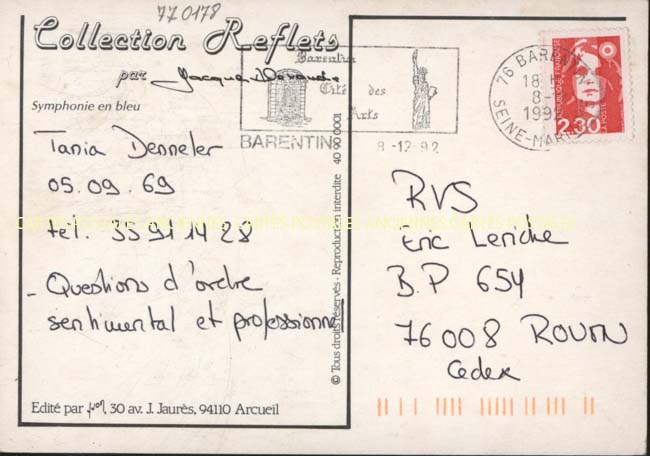 770178
Collection Reflets
par Jacques
Symphonie en bleu
Tania Denneler
05.09.69
tel. 35 91 14 28
- Questions d'ordre
sentimental et professionnel
Edité par 30 av. J. Jaurès, 94110 Arcueil
© Tous droits réservés - Reproduction interdite 40 90 0001
Barentin
Cité des
Arts
BARENTIN
8-12-92
76 BARENTIN
18 H
8-
1992
SEINE-MARIT
REPUBLIQUE FRANÇAISE
LA POSTE
2,30
RVS
Eric Leriche
B.P 654
76008 ROUEN
Cedex
CARTES POSTALES ANCIENNES CARTES POSTALES